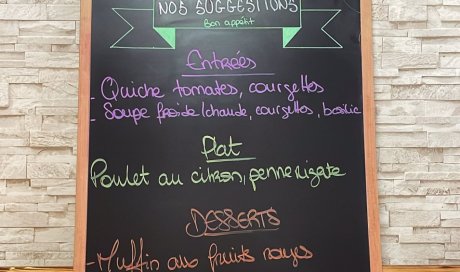 NOS SUGGESTIONS
Bon appétit
Entrées
- Quiche tomates, courgettes
- Soupe froide/chaude, courgettes, basilic
Plat
Poulet au citron, penne rigate
DESSERTS
- Muffin aux fruits rouges